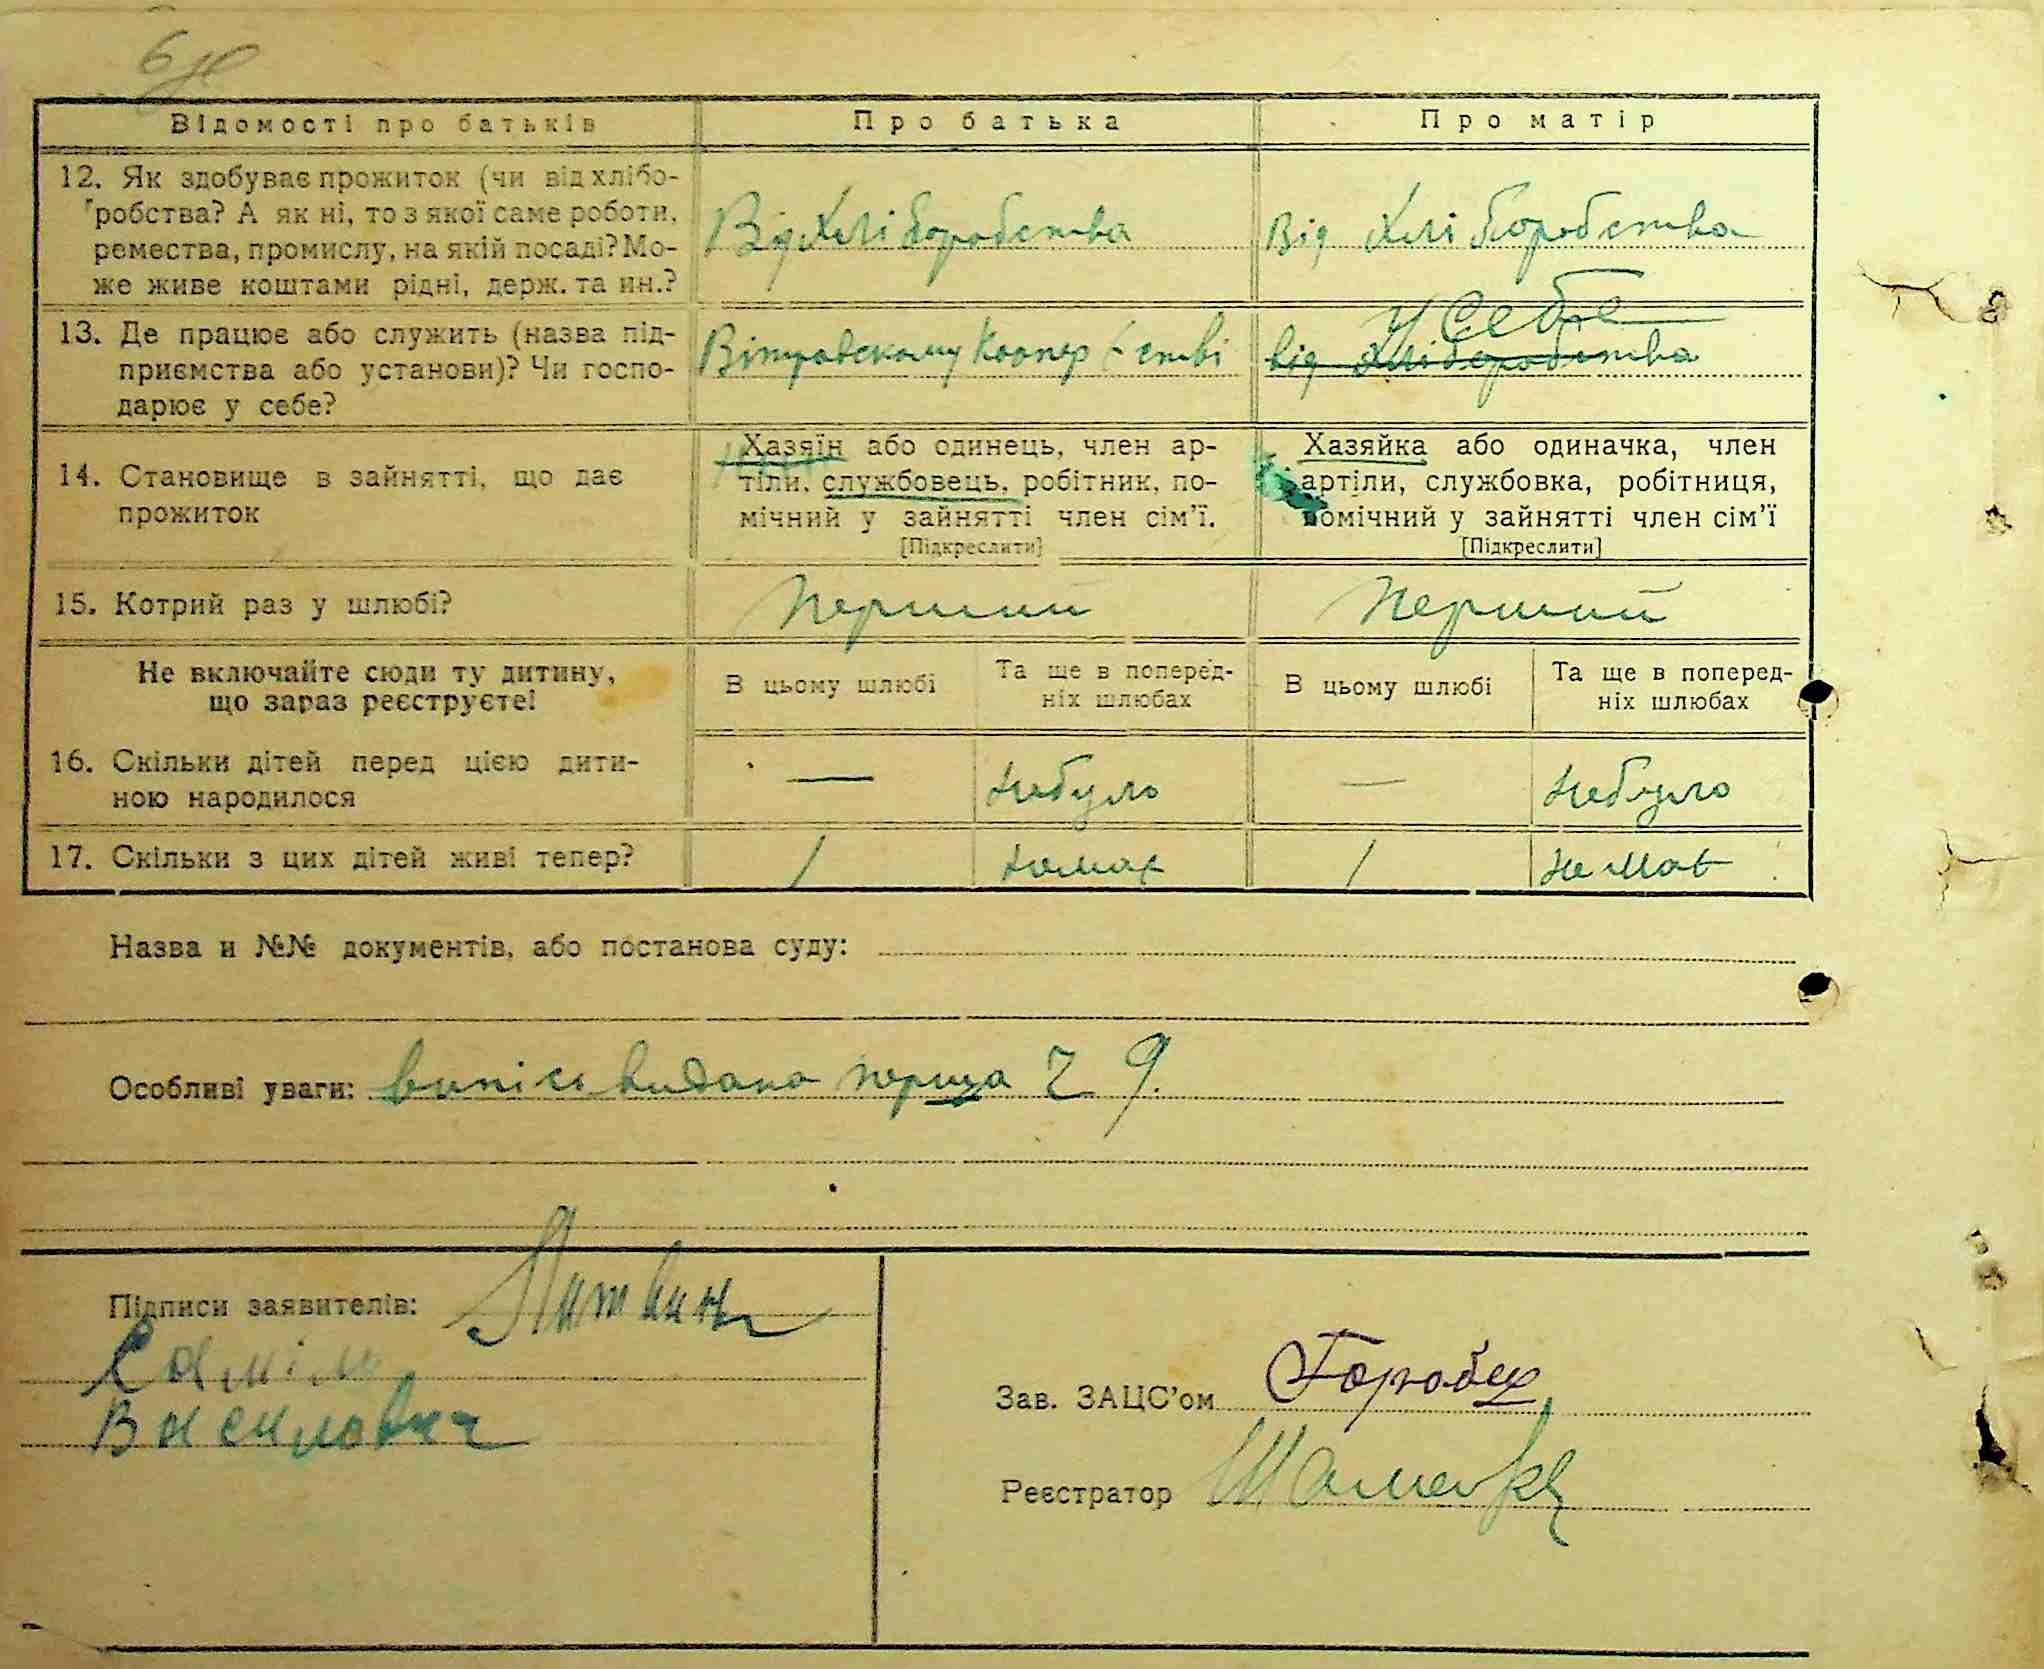 6
Відомості про батьків Про батька Про матір
12. Як здобуває прожиток (чи від хлібо-
робства? А як ні, то з якої саме роботи,
ремества, промислу, на якій посаді? Мо-
же живе коштами рідні, держ. та ин.?
Від Хлі боробства Від Хлі боробства
13. Де працює або служить (назва під-
приємства або установи)? Чи госпо-
дарює у себе?
Вітровскому Коопер стві
у Себе
від хліборобства
14. Становище в зайнятті, що дає
прожиток
Хазяїн або одинець, член ар-
тіли, службовець, робітник, по-
мічний у зайнятті член сім'ї.
[Підкреслити]
Хазяйка або одиначка, член
артіли, службовка, робітниця,
помічний у зайнятті член сім'ї
[Підкреслити]
15. Котрий раз у шлюбі? Перший Перший
Не включайте сюди ту дитину,
що зараз реєструєте!
В цьому шлюбі
Та ще в поперед-
ніх шлюбах
В цьому шлюбі
Та ще в поперед-
ніх шлюбах
16. Скільки дітей перед цією дити-
ною народилося
— Небуло — Небуло
17. Скільки з цих дітей живі тепер? / немає / не має
Назва и №№ документів, або постанова суду:
Особливі уваги: випісь видана перша
Підписи заявителів: Литвин
Василовна
Зав. ЗАЦС'ом Горобец
Реєстратор